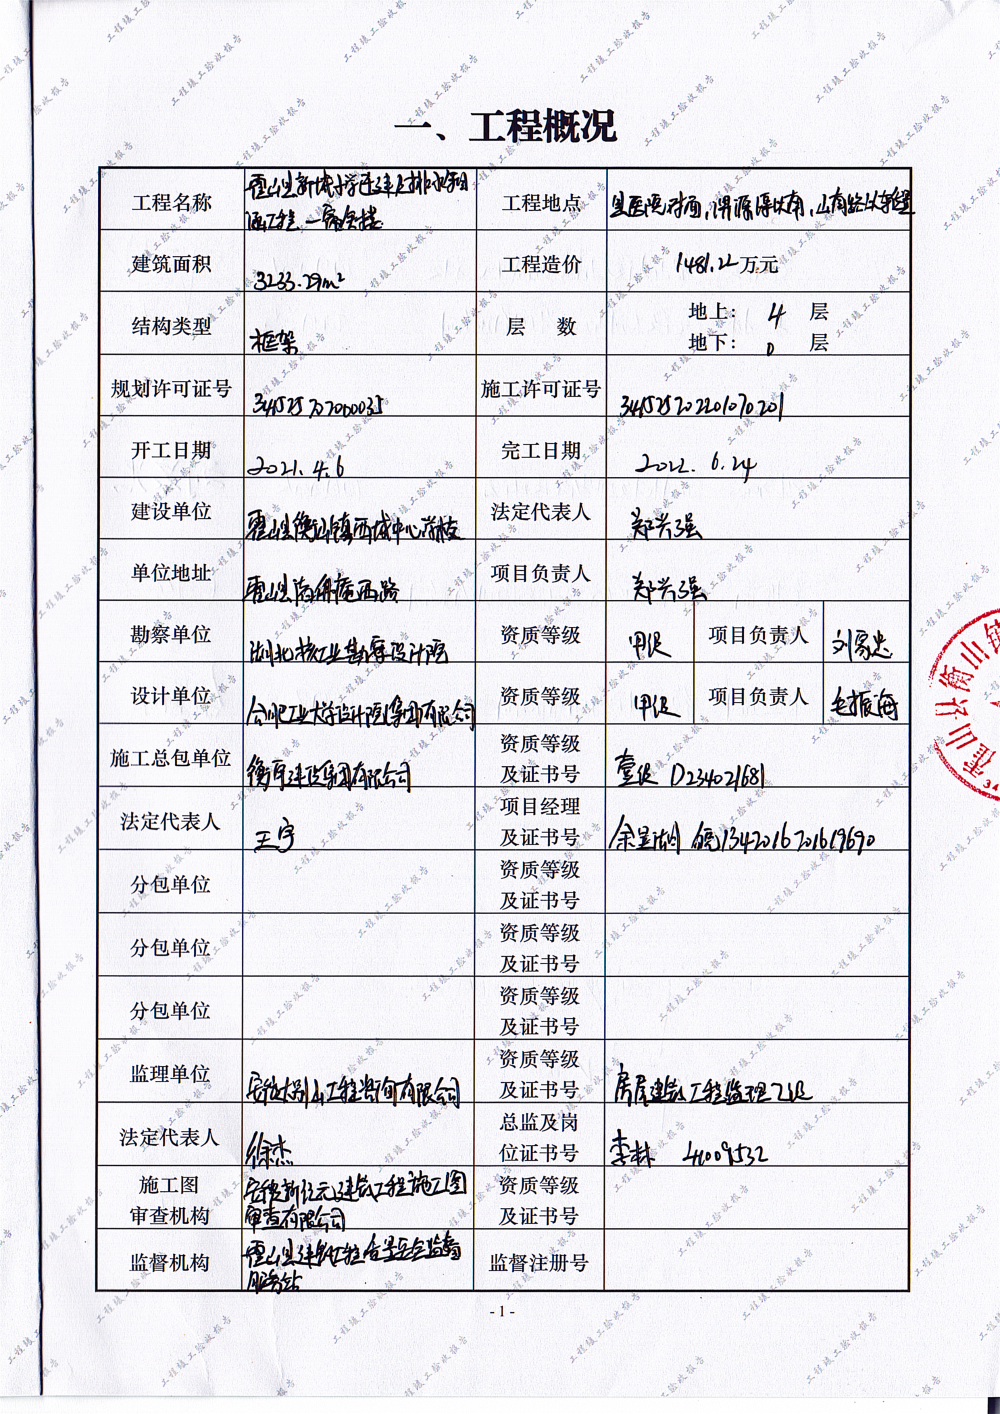 一、工程概况
工程名称 霍山县新城小学 工程地点 县医院对面,
工程 一 宿舍楼
建筑面积 3233.29m² 工程造价 1481.22万元
结构类型 框架 层 数 地上: 4 层
地下: 0 层
规划许可证号 施工许可证号
开工日期 2021.4.6 完工日期 2022.6.24
建设单位 霍山县衡山镇西城中心学校 法定代表人 郑兴强
单位地址 霍山县 西路 项目负责人 郑兴强
勘察单位 湖北核工业勘察设计院 资质等级 甲级 项目负责人 刘家忠
设计单位 合肥工业大学设计院(集团)有限公司 资质等级 甲级 项目负责人 毛振海
施工总包单位 衡宇建设集团有限公司 资质等级
及证书号 壹级 D234021681
法定代表人 王宇 项目经理
及证书号
分包单位 资质等级
及证书号
分包单位 资质等级
及证书号
分包单位 资质等级
及证书号
监理单位 工程咨询有限公司 资质等级
及证书号 房屋建筑工程监理乙级
法定代表人 徐杰 总监及岗
位证书号 李林 41009532
施工图
审查机构 建筑工程施工图
审查有限公司 资质等级
及证书号
监督机构 霍山县建筑工程质量安全监督
服务站 监督注册号
- 1 -
霍山县衡山镇
工程竣工验收报告